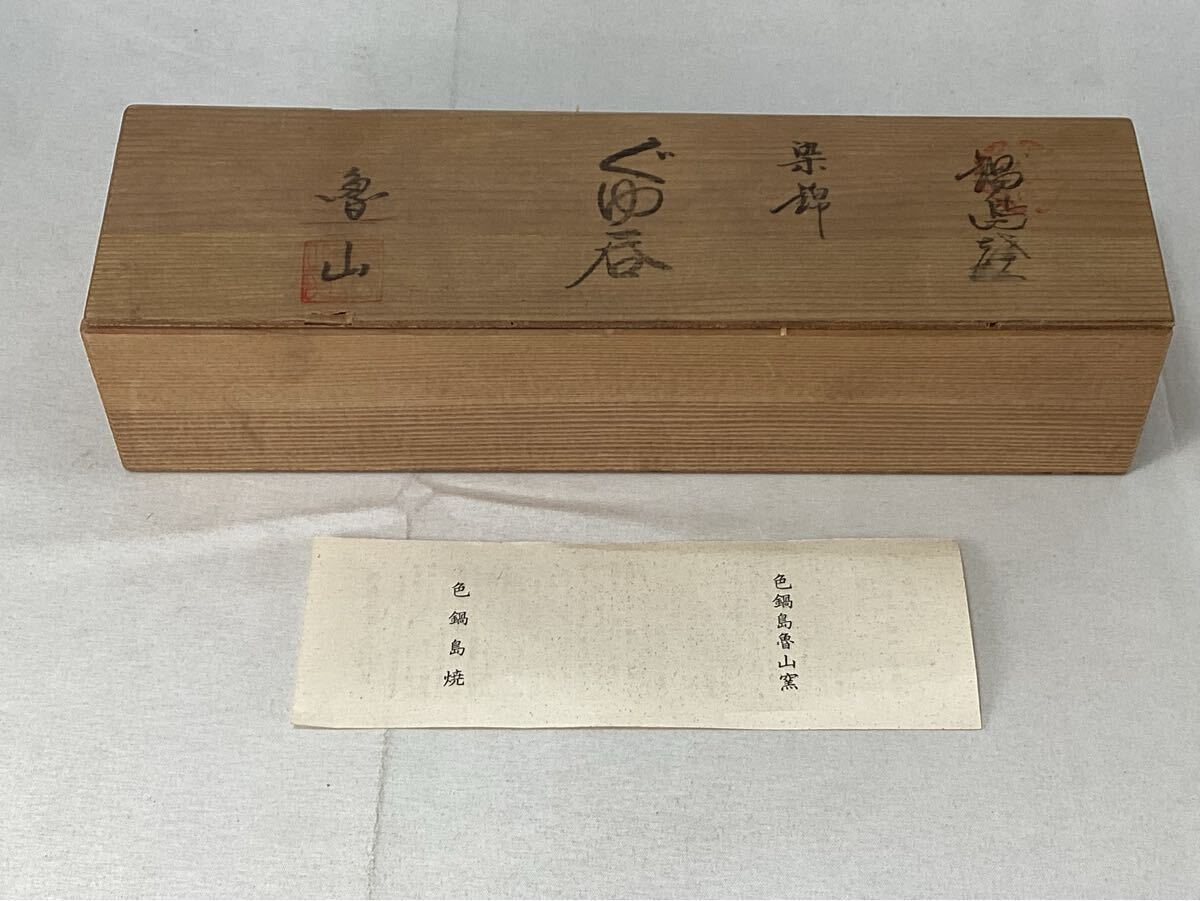 鍋島焼
染錦
ぐゐ呑
魯山
色鍋島魯山窯
色鍋島焼